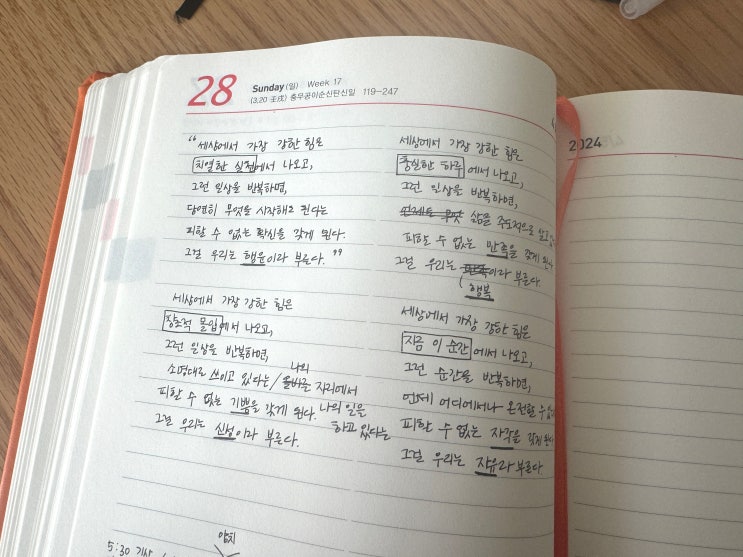 28 Sunday (일) Week 17
(3.20 壬戌) 충무공이순신탄신일 119-247
2024
“세상에서 가장 강한 힘은
치열한 실천에서 나오고,
그런 일상을 반복하면,
당연히 무엇을 시작해도 된다는
피할 수 없는 확신을 갖게 된다.
그걸 우리는 행운이라 부른다.”
세상에서 가장 강한 힘은
충실한 하루에서 나오고,
그런 일상을 반복하면,
언제든 무엇 삶을 주도적으로
피할 수 없는 만족을 갖게 된다
그걸 우리는 만족이라 부른다.
행복
세상에서 가장 강한 힘은
창조적 몰입에서 나오고,
그런 일상을 반복하면,
나의
소명대로 쓰이고 있다는/올바른 자리에서
피할 수 없는 기쁨을 갖게 된다. 나의 일을
하고 있다는
그걸 우리는 신성이라 부른다.
세상에서 가장 강한 힘은
지금 이 순간에서 나오고,
그런 순간을 반복하면,
언제 어디에서나 온전할 수 있
피할 수 없는 자각을 갖게 된다
그걸 우리는 자유라 부른다.
5:30 기상